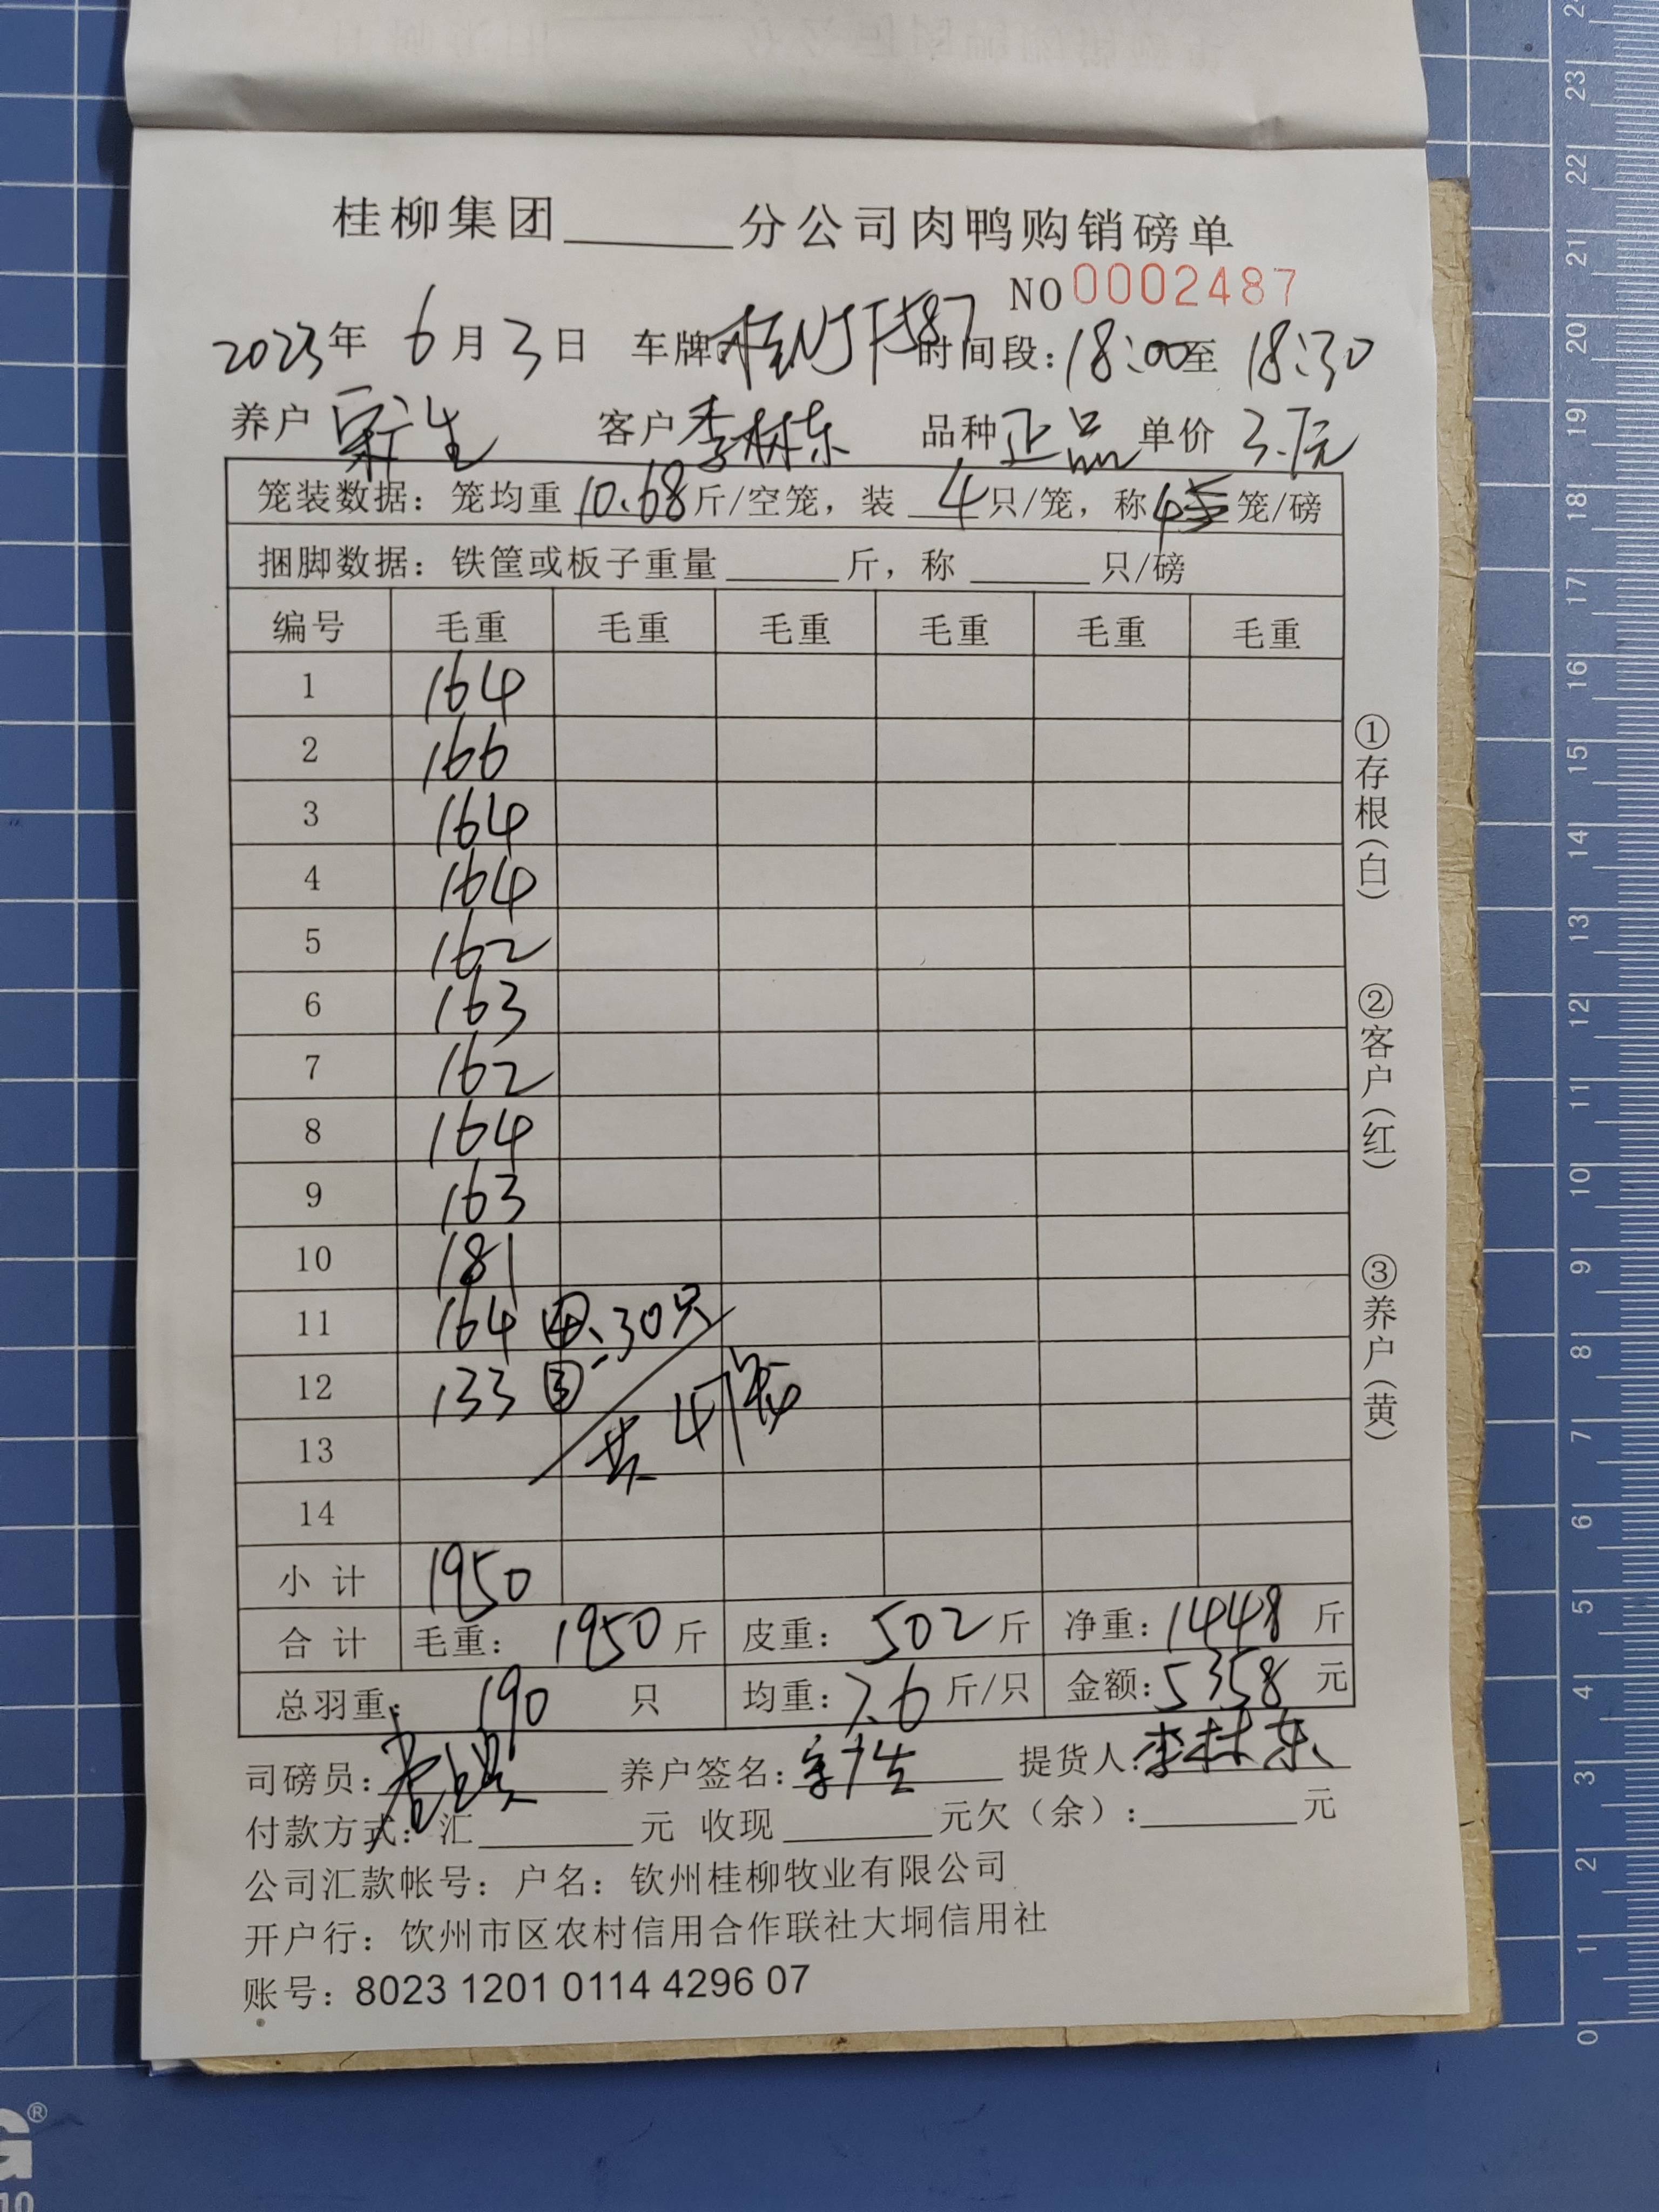 桂柳集团______分公司肉鸭购销磅单
NO 0002487
2023年 6月 3日 车牌: 时间段: 18:00至 18:30
养户 宋广生 客户 李林东 品种 正品 单价 3.7元
笼装数据: 笼均重 10.68 斤/空笼, 装 4 只/笼, 称 4 笼/磅
捆脚数据: 铁筐或板子重量______斤, 称______只/磅
编号 毛重 毛重 毛重 毛重 毛重 毛重
1 164
2 166
3 164
4 164
5 162
6 163
7 162
8 164
9 163
10 181
11 164 ④、30只
12 133 ③
共47笼
13
14
小计 1950
合计 毛重: 1950斤 皮重: 502斤 净重: 1448斤
总羽重: 190 只 均重: 7.6 斤/只 金额: 5358 元
司磅员: 养户签名: 宋广生 提货人: 李林东
付款方式: 汇______元 收现______元欠(余):______元
公司汇款帐号: 户名: 钦州桂柳牧业有限公司
开户行: 钦州市区农村信用合作联社大垌信用社
账号: 8023 1201 0114 4296 07
①存根(白)
②客户(红)
③养户(黄)
24
23
22
21
20
19
18
17
16
15
14
13
12
11
10
9
8
7
6
5
4
3
2
1
0
G®
10